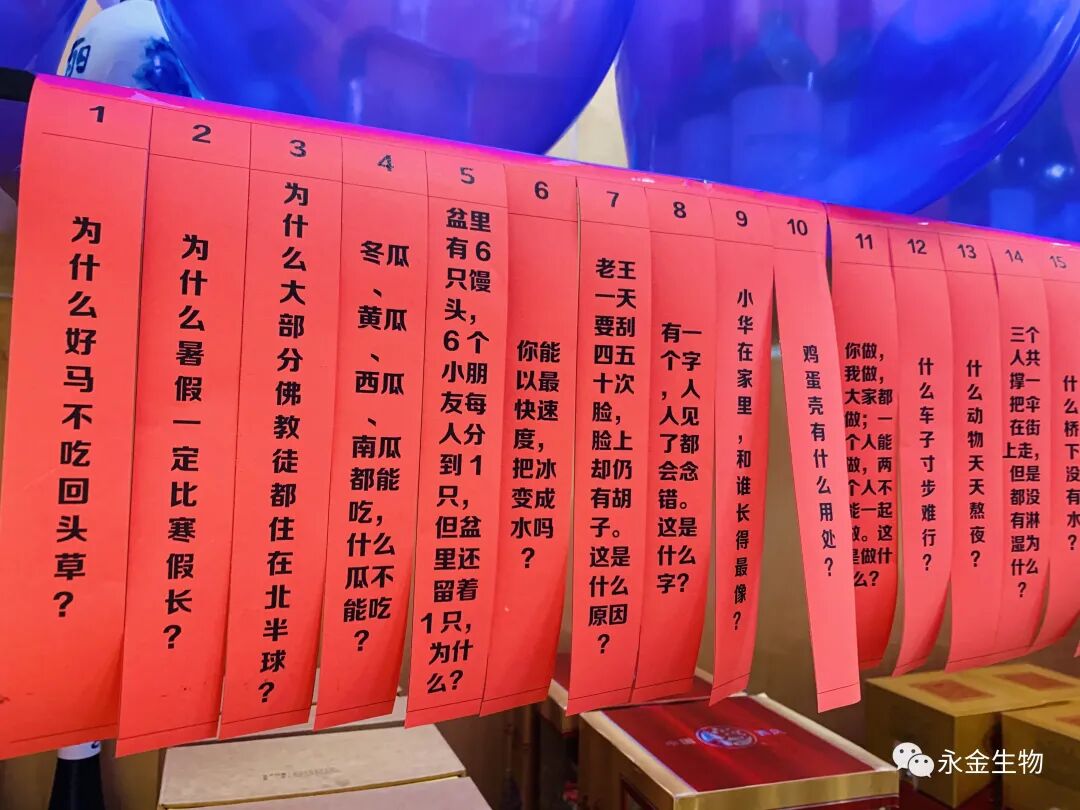 1
为什么好马不吃回头草？
2
为什么暑假一定比寒假长？
3
为什么大部分佛教徒都住在北半球？
4
冬瓜、黄瓜、西瓜、南瓜都能吃，什么瓜不能吃？
5
盆里有6只馒头，6个小朋友每人分到1只，但盆里还留着1只，为什么？
6
你能以最快速度，把冰变成水吗？
7
老王一天要刮四五十次脸，脸上却仍有胡子。这是什么原因？
8
有一个字，人人见了都会念错。这是什么字？
9
小华在家里，和谁长得最像？
10
鸡蛋壳有什么用处？
11
你做，我做，大家都做；一个人能做，两个人不能一起做。这是做什么？
12
什么车子寸步难行？
13
什么动物天天熬夜？
14
三个人共撑一把伞在街上走，但是都没有淋湿为什么？
15
什么桥下没有水
永金生物